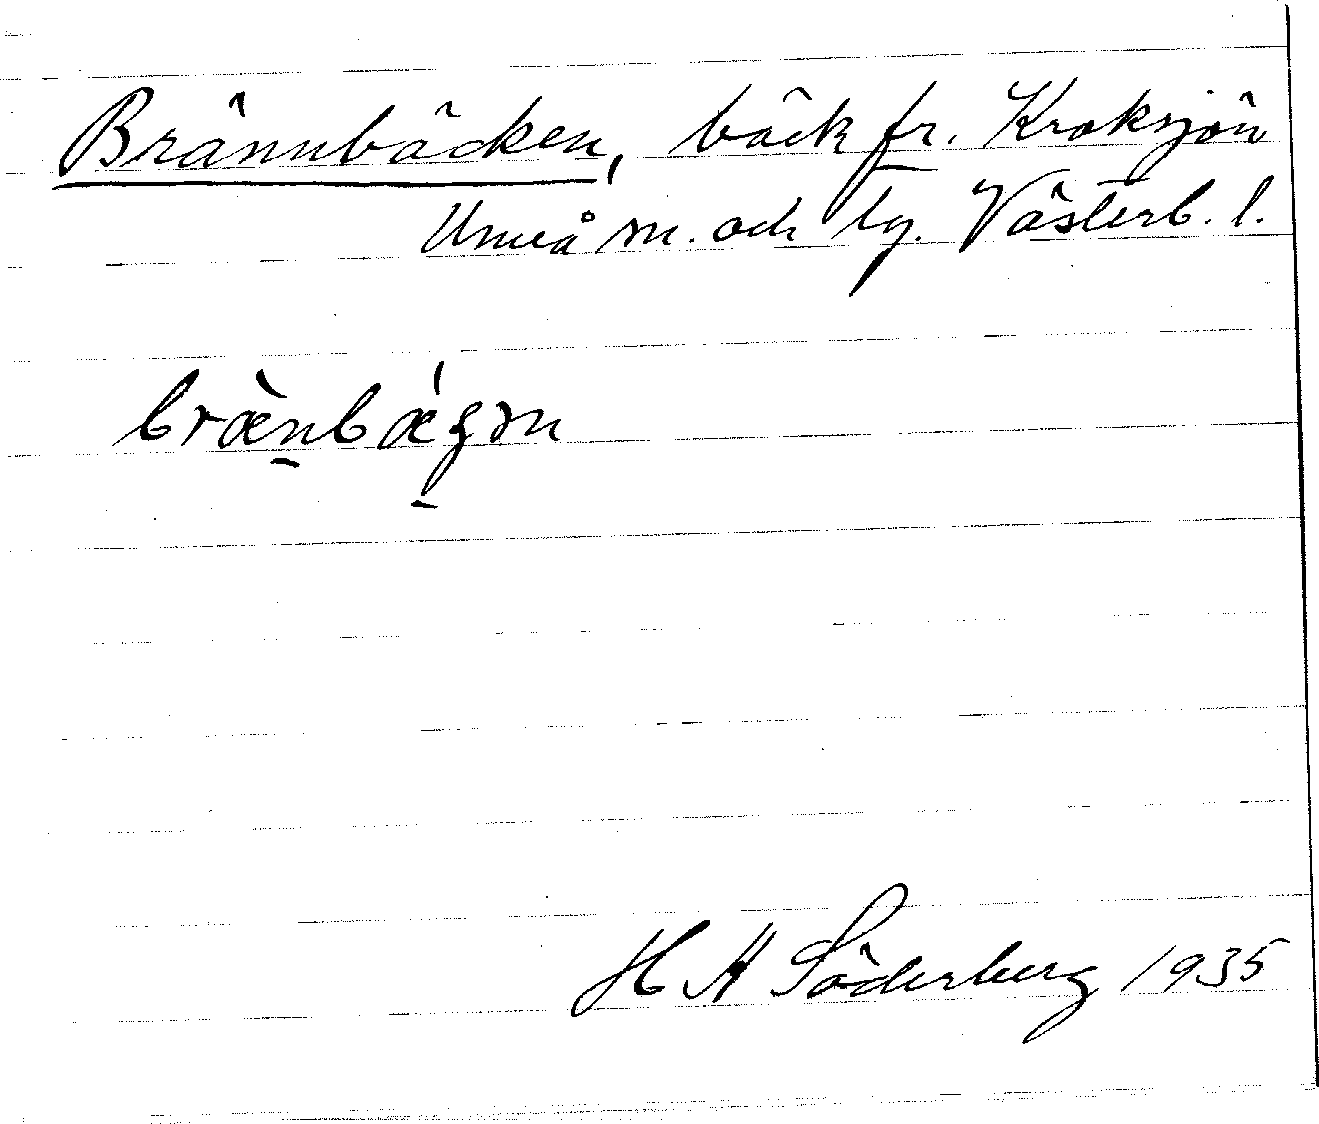 Brännbäcken, bäck fr. Kroksjön
Umeå sn. och tg. Västerb. l.
bræ̀n̠bǽg̠ən
H A Söderberg 1935